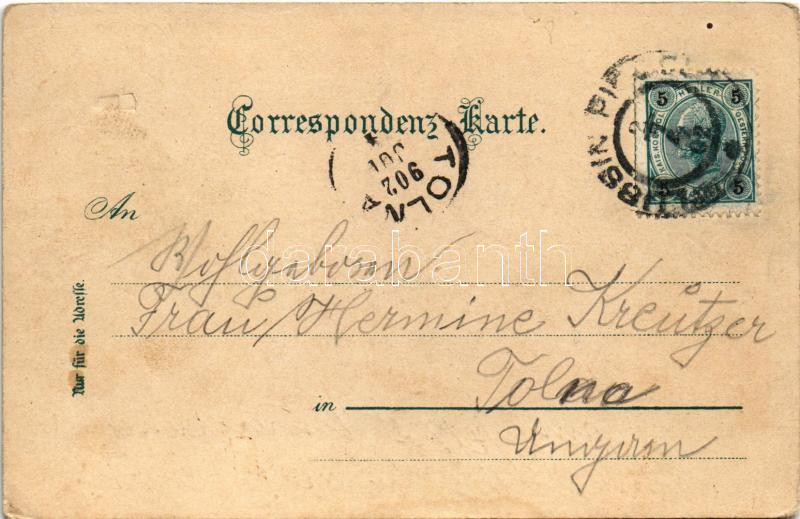 Correspondenz-Karte.
TOLNA
902
JUL
5 HELLER 5
5 5
An
Wohlgeboren
Frau Hermine Kreutzer
in Tolna
Ungarn
Nur für die Adresse.
darabanth